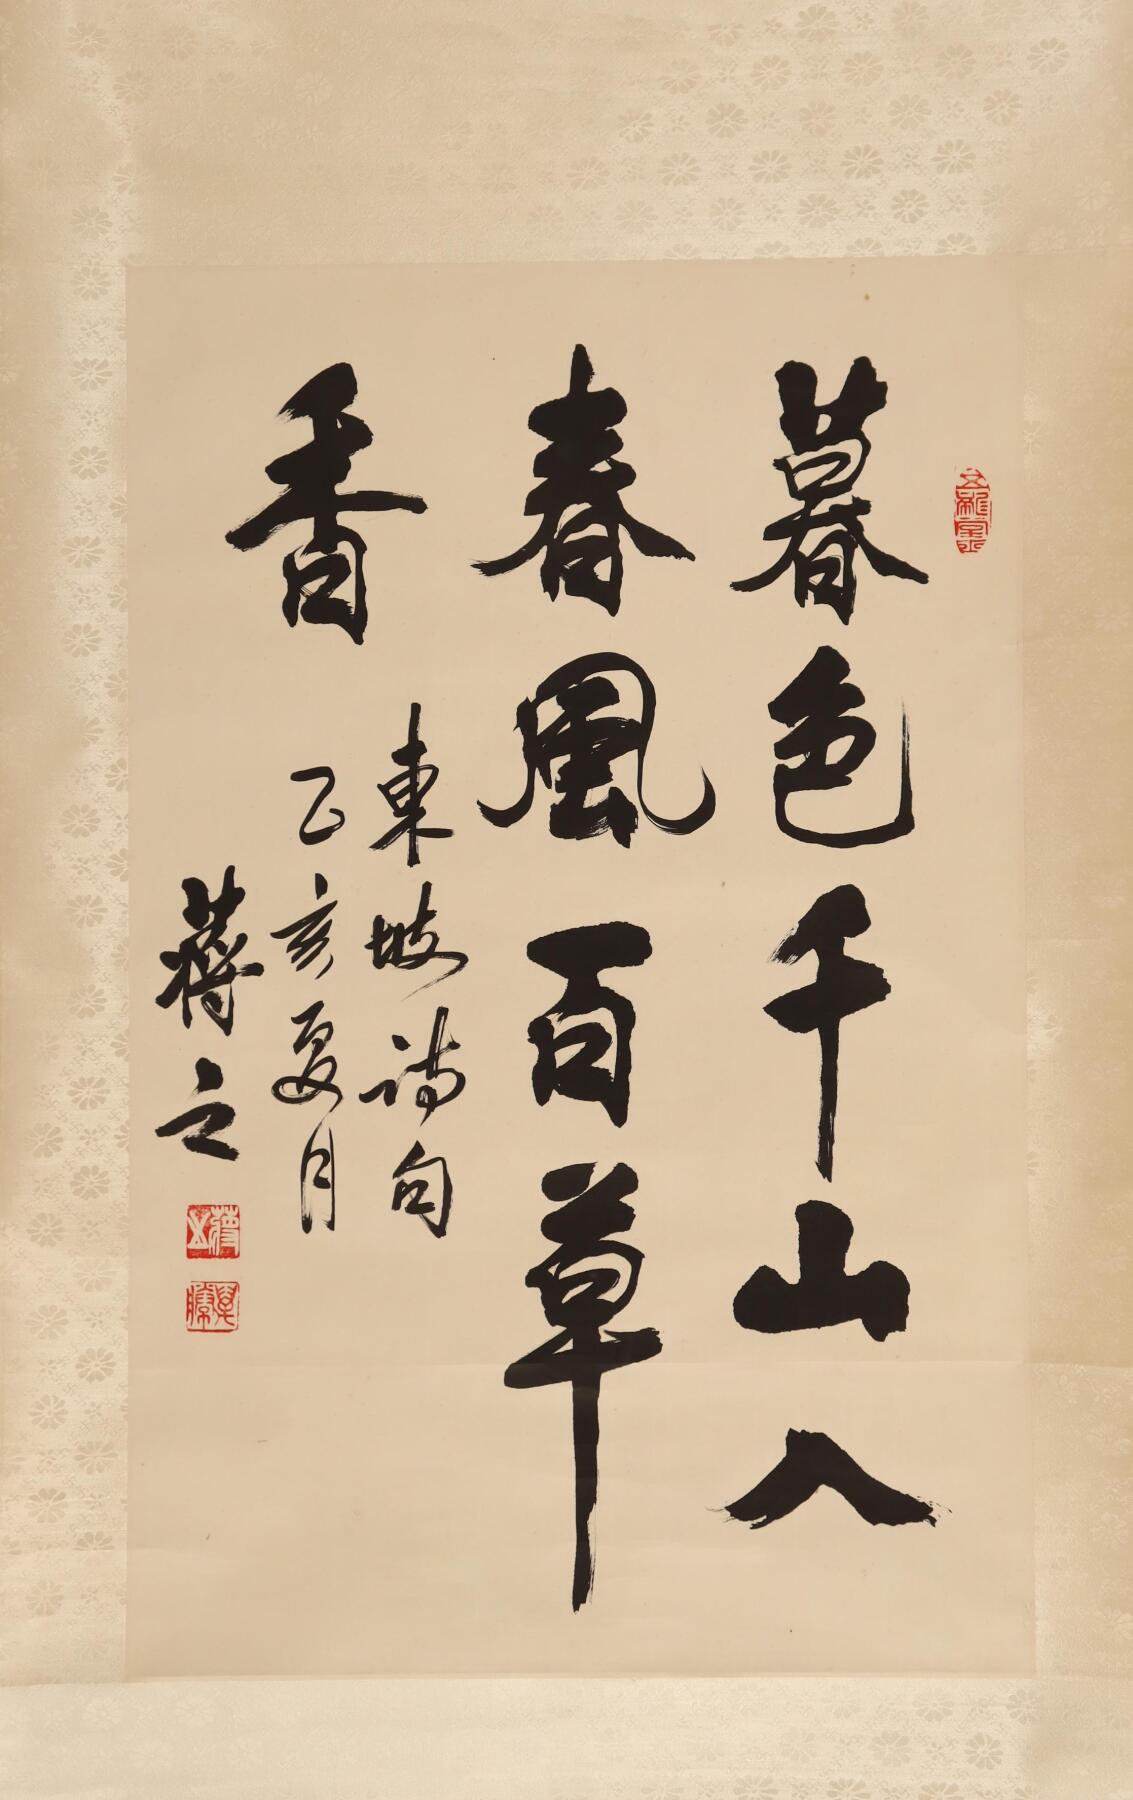 暮色千山入
春風百草
香
東坡詩句
乙亥夏月
蔣之